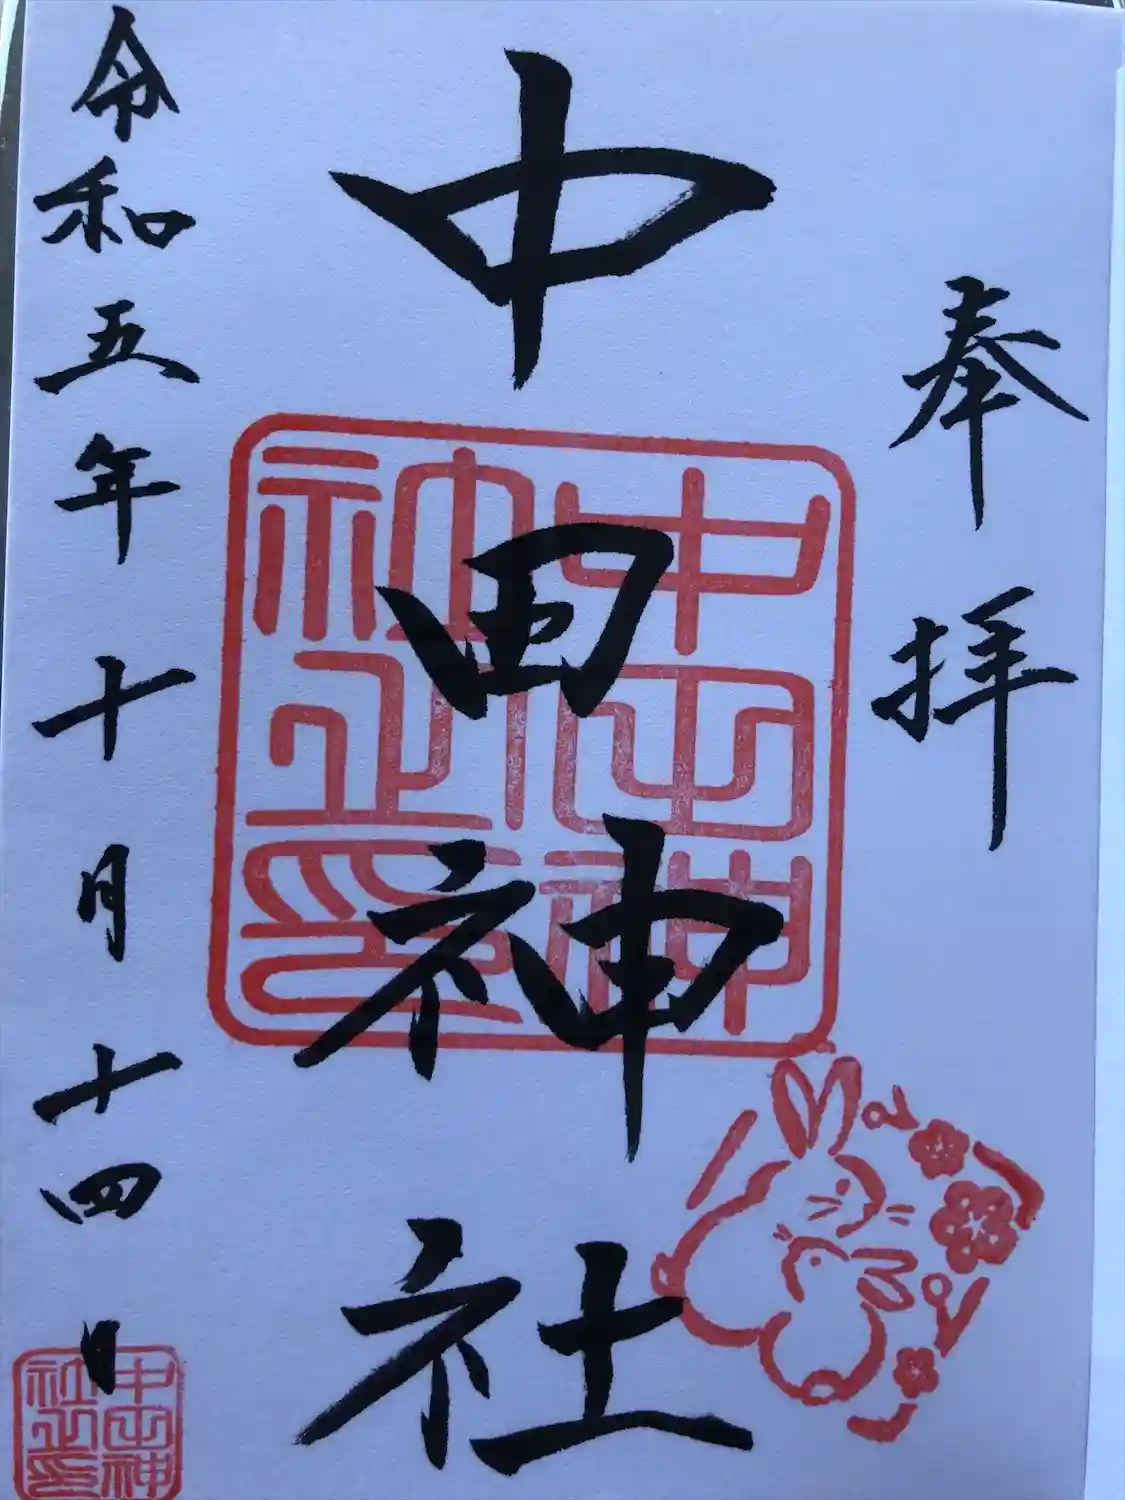 奉拝
中田神社
令和五年十月十四日
中山神
社之印
中山神
社之印